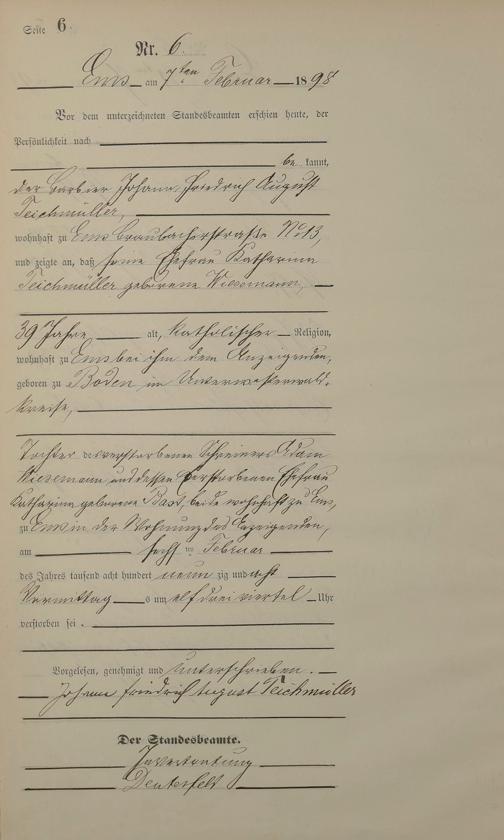 Seite 6.
Nr. 6.
Ems am 7ten Februar 1898
Vor dem unterzeichneten Standesbeamten erschien heute, der
Persönlichkeit nach
be kannt,
der Barbier Johann Friedrich August
Teichmüller,
wohnhaft zu Ems Braubacherstraße No 13,
und zeigte an, daß seine Ehefrau Katharina
Teichmüller geborene Wiesemann,
39 Jahre alt, katholischer Religion,
wohnhaft zu Ems bei ihm dem Anzeigenden,
geboren zu Boden im Unterwesterwald-
kreise,
Tochter des verstorbenen Schreiners Adam
Wiesemann und dessen verstorbenen Ehefrau
Katharina geborene Bast, beide wohnhaft zu Ems,
zu Ems in der Wohnung des Anzeigenden,
am sechsten Februar
des Jahres tausend acht hundert neun zig und acht
Vormittags um elf dreiviertel Uhr
verstorben sei.
Vorgelesen, genehmigt und unterschrieben.
Johann Friedrich August Teichmüller
Der Standesbeamte.
In Vertretung